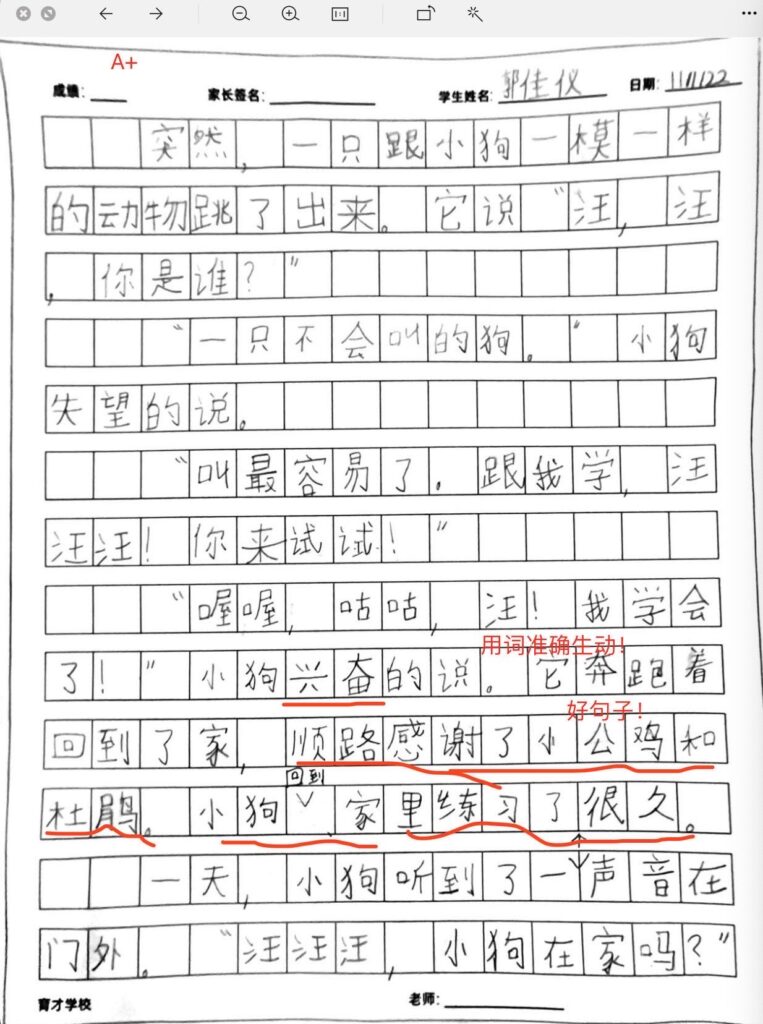 A+
成绩: 家长签名: 学生姓名: 郭佳仪 日期: 11/1/22
突然,一只跟小狗一模一样
的动物跳了出来。它说“汪,汪
,你是谁?”
“一只不会叫的狗。”小狗
失望的说。
“叫最容易了。跟我学,汪
汪汪!你来试试!”
“喔喔,咕咕,汪!我学会
用词准确生动!
了!”小狗兴奋的说。它奔跑着
好句子!
回到了家,顺路感谢了小公鸡和
回到
杜鹃。小狗、家里练习了很久。
一天,小狗听到了一声音在
门外。“汪汪汪,小狗在家吗?”
育才学校 老师: